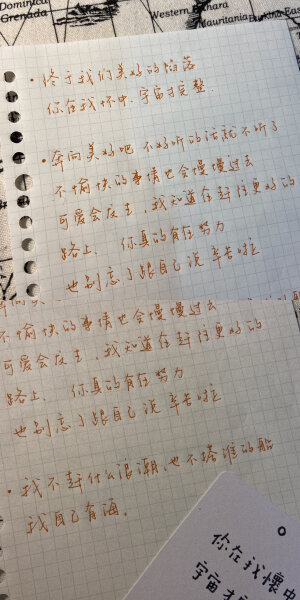 Dominica
Grenada
Western Sahara
Mauritania
Burkina Faso
·终于我们美好的陷落
你在我怀中,宇宙才完整
·奔向美好吧 不好听的话就不听了
不愉快的事情也会慢慢过去
可爱会发生,我知道在赶往更好的
路上. 你真的有在努力
也别忘了跟自己说 辛苦啦
不愉快的事情也会慢慢过去
可爱会发生,我知道在赶往更好的
路上. 你真的有在努力
也别忘了跟自己说 辛苦啦
·我不赶什么浪潮,也不搭谁的船
我自己有海。
你在我懷中
宇宙才